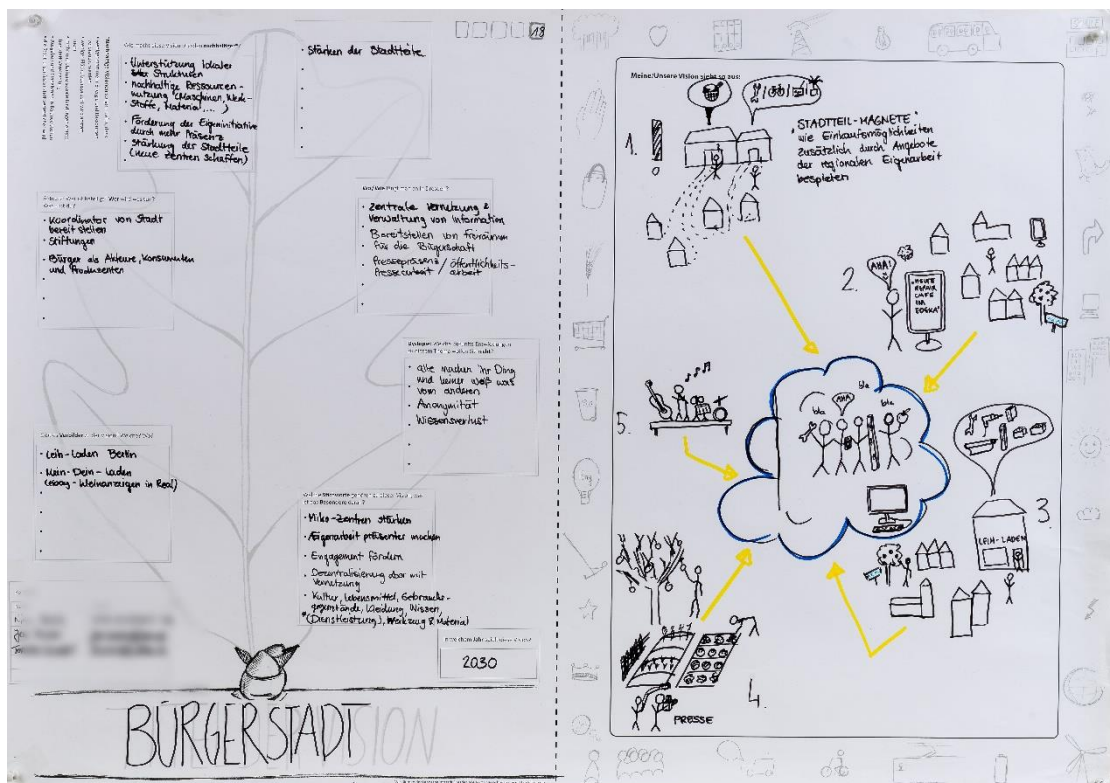 18
Was macht diese Vision für Sie nachhaltiger?
• Unterstützung lokaler
Strukturen
• nachhaltige Ressourcen-
nutzung (Maschinen, Werk-
stoffe, Material, ...)
• Förderung der Eigeninitiative
durch mehr Präsenz
• Stärkung der Stadtteile
(neue Zentren schaffen)
• Stärken der Stadtteile
• Koordinator von Stadt
bereit stellen
• Stiftungen
• Bürger als Akteure, Konsumenten
und Produzenten
• Zentrale Vernetzung &
Verwaltung von Information
• Bereitstellen von Freiräumen
für die Bürgerschaft
• Pressepräsenz / Öffentlichkeits-
Pressearbeit arbeit
• alle machen ihr Ding
und keiner weiß was
vom anderen
• Anonymität
• Wissensverlust
• Leih-Laden Berlin
• Mein-Dein-Laden
(ebay-Kleinanzeigen in Real)
• Mikro-Zentren stärken
• Eigenarbeit präsenter machen
• Engagement fördern
• Dezentralisierung aber mit
Vernetzung
• Kultur, Lebensmittel, Gebrauchs-
gegenstände, Kleidung, Wissen,
(Dienstleistung), Werkzeug & Material
2030
BÜRGERSTADT
VISION
Meine/Unsere Vision sieht so aus:
1.
"STADTTEIL-MAGNETE"
wie Einkaufsmöglichkeiten
zusätzlich durch Angebote
der regionalen Eigenarbeit
bespielen
2.
AHA!
HEUTE
REPAIR
CAFE
IM
EDEKA
bla
AHA
bla
bla
3.
LEIH-LADEN
4.
PRESSE
5.